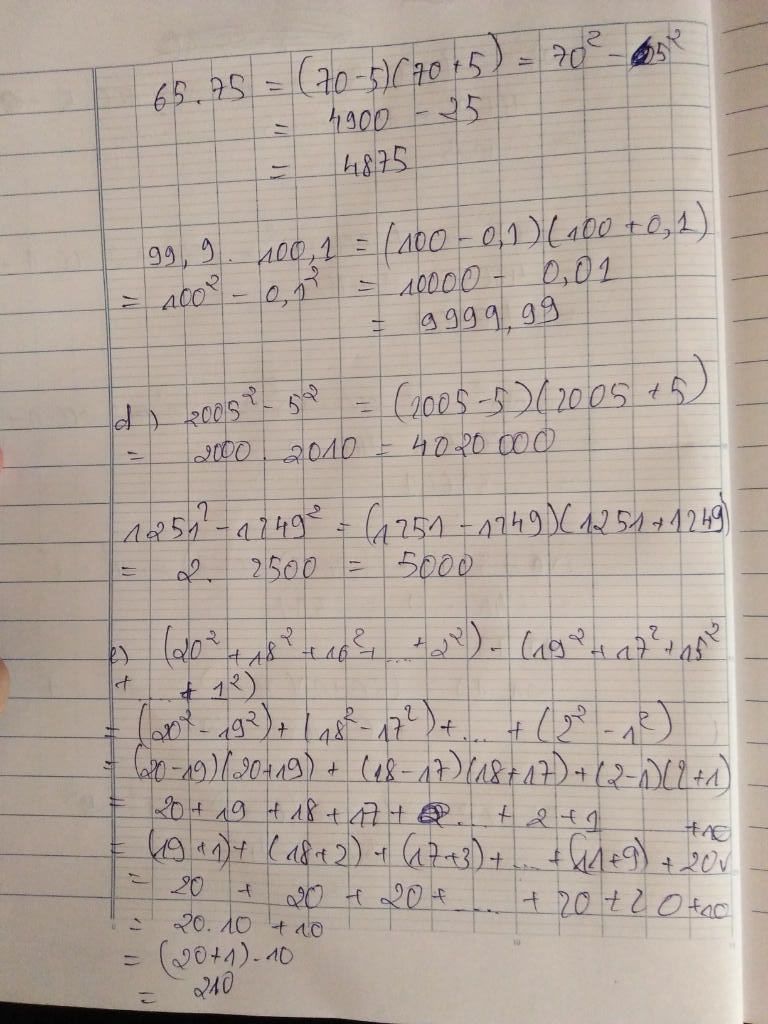 65.75 = (70-5)(70+5) = 70² - 5²
= 4900 - 25
= 4875
99,9. 100,1 = (100 - 0,1)(100 + 0,1)
= 100² - 0,1² = 10000 - 0,01
= 9999,99
d) 2005² - 5² = (2005-5)(2005 + 5)
= 2000. 2010 = 4020 000
1251² - 1249² = (1251 - 1249)(1251 + 1249)
= 2. 2500 = 5000
e) (20² + 18² + 16² + ... + 2²) - (19² + 17² + 15²
+ ... + 1²)
= (20² - 19²) + (18² - 17²) + ... + (2² - 1²)
= (20-19)(20+19) + (18-17)(18+17) + (2-1)(2+1)
= 20 + 19 + 18 + 17 + ... + 2 + 1
+10
= (19+1) + (18+2) + (17+3) + ... + (11+9) + 20
= 20 + 20 + 20 + .... + 20 + 20 +10
= 20.10 + 10
= (20+1).10
= 210